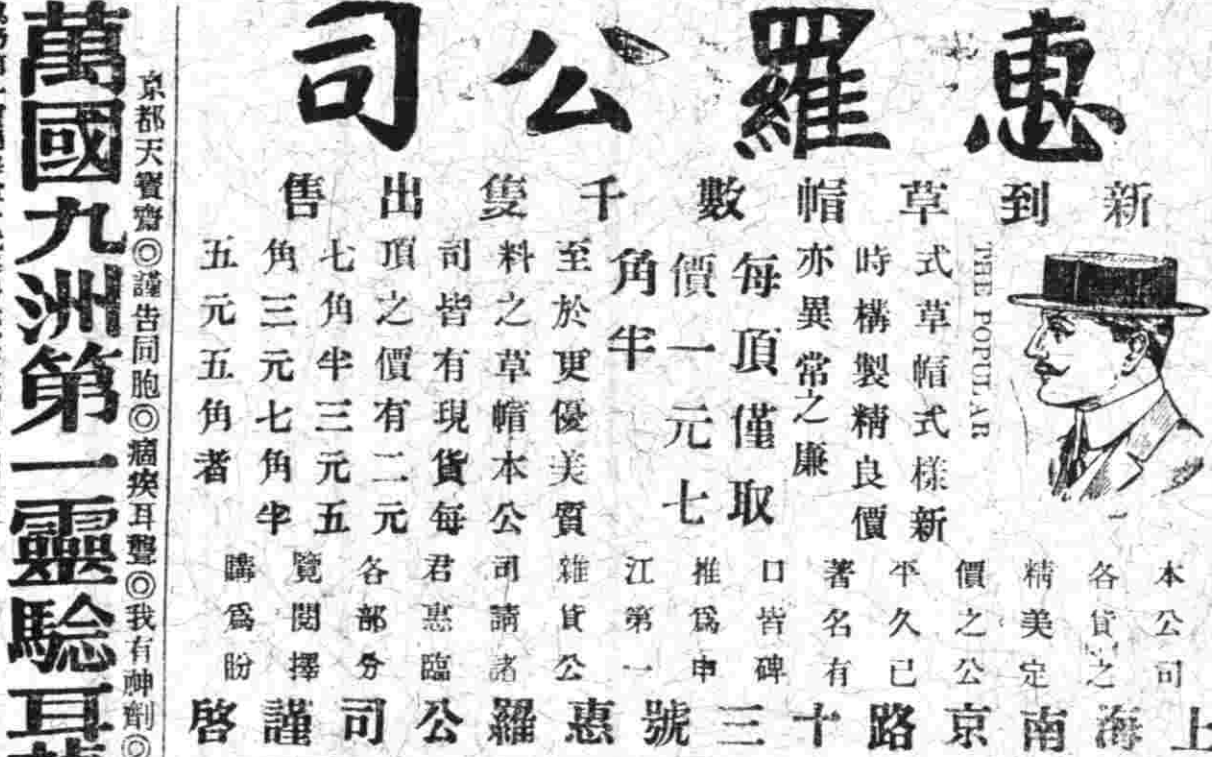 惠羅公司
新到草帽數千隻出售
THE POPULAR
式草帽式樣新
時構製精良價
亦異常之廉
每頂僅取
價一元七
角半
至於更優美質
料之草帽本公
司皆有現貨每
頂之價有二元
七角半三元五
角三元七角半
五元五角者
本公司
各貨之
精美定
價之公
平久已
著名有
口皆碑
推爲申
江第一
雜貨公
司請諸
君惠臨
各部分
覽閱擇
購爲盼
上海南京路十三號惠羅公司謹啓
京都天寶齋◎謹告同胞◎痼疾耳聾◎我有神劑◎
萬國九洲第一靈驗耳